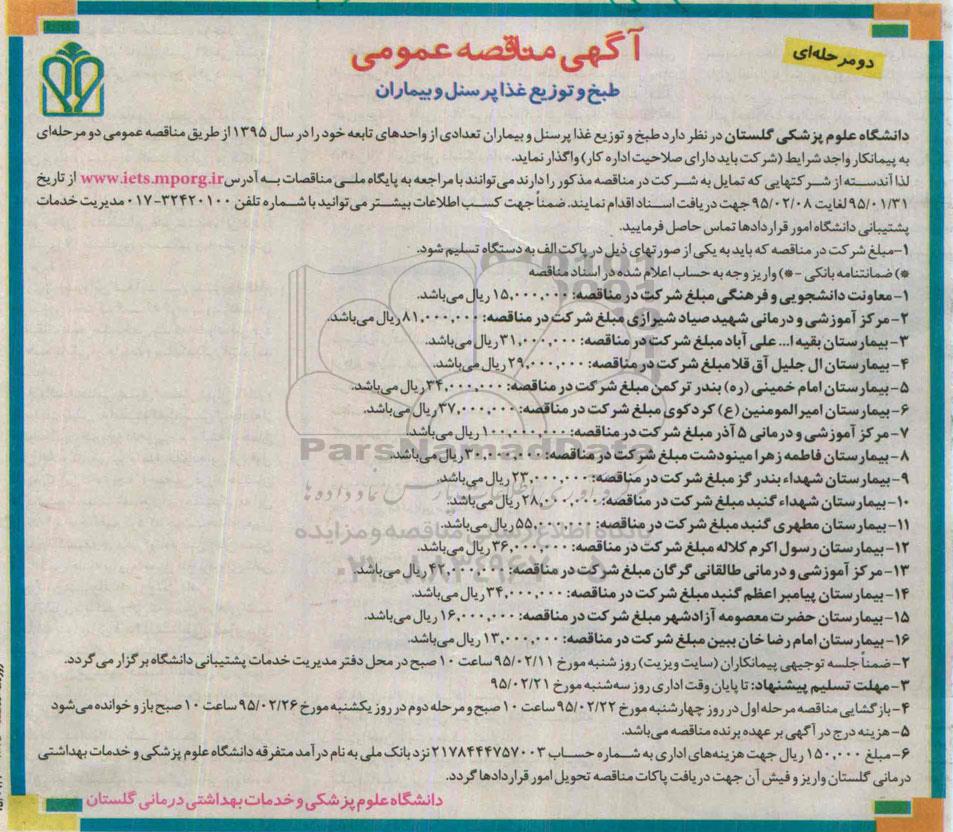 دو مرحله‌ای
آگهی مناقصه عمومی
طبخ و توزیع غذا پرسنل و بیماران
دانشگاه علوم پزشکی گلستان در نظر دارد طبخ و توزیع غذا پرسنل و بیماران تعدادی از واحدهای تابعه خود را در سال ۱۳۹۵ از طریق مناقصه عمومی دو مرحله‌ای
به پیمانکار واجد شرایط (شرکت باید دارای صلاحیت اداره کار) واگذار نماید.
لذا آندسته از شرکتهایی که تمایل به شرکت در مناقصه مذکور را دارند می‌توانند با مراجعه به پایگاه ملی مناقصات به آدرس www.iets.mporg.ir از تاریخ
۹۵/۰۱/۳۱ لغایت ۹۵/۰۲/۰۸ جهت دریافت اسناد اقدام نمایند. ضمناً جهت کسب اطلاعات بیشتر می‌توانید با شماره تلفن ۳۲۴۲۰۱۰۰-۰۱۷ مدیریت خدمات
پشتیبانی دانشگاه امور قراردادها تماس حاصل فرمایید.
۱-مبلغ شرکت در مناقصه که باید به یکی از صورتهای ذیل در پاکت الف به دستگاه تسلیم شود.
*) ضمانتنامه بانکی -*) واریز وجه به حساب اعلام شده در اسناد مناقصه
۱-معاونت دانشجویی و فرهنگی مبلغ شرکت در مناقصه: ۱۵,۰۰۰,۰۰۰ ریال می‌باشد.
۲-مرکز آموزشی و درمانی شهید صیاد شیرازی مبلغ شرکت در مناقصه: ۸۱,۰۰۰,۰۰۰ ریال می‌باشد.
۳-بیمارستان بقیه ا... علی آباد مبلغ شرکت در مناقصه: ۳۱,۰۰۰,۰۰۰ ریال می‌باشد.
۴-بیمارستان ال جلیل آق قلا مبلغ شرکت در مناقصه: ۲۹,۰۰۰,۰۰۰ ریال می‌باشد.
۵-بیمارستان امام خمینی (ره) بندر ترکمن مبلغ شرکت در مناقصه: ۳۴,۰۰۰,۰۰۰ ریال می‌باشد.
۶-بیمارستان امیرالمومنین (ع) کردکوی مبلغ شرکت در مناقصه: ۳۷,۰۰۰,۰۰۰ ریال می‌باشد.
۷-مرکز آموزشی و درمانی ۵ آذر مبلغ شرکت در مناقصه: ۱۰۰,۰۰۰,۰۰۰ ریال می‌باشد.
۸-بیمارستان فاطمه زهرا مینودشت مبلغ شرکت در مناقصه: ۳۰,۰۰۰,۰۰۰ ریال می‌باشد.
۹-بیمارستان شهداء بندر گز مبلغ شرکت در مناقصه: ۲۳,۰۰۰,۰۰۰ ریال می‌باشد.
۱۰-بیمارستان شهداء گنبد مبلغ شرکت در مناقصه: ۲۸,۰۰۰,۰۰۰ ریال می‌باشد.
۱۱-بیمارستان مطهری گنبد مبلغ شرکت در مناقصه: ۵۵,۰۰۰,۰۰۰ ریال می‌باشد.
۱۲-بیمارستان رسول اکرم کلاله مبلغ شرکت در مناقصه: ۳۶,۰۰۰,۰۰۰ ریال می‌باشد.
۱۳-مرکز آموزشی و درمانی طالقانی گرگان مبلغ شرکت در مناقصه: ۴۲,۰۰۰,۰۰۰ ریال می‌باشد.
۱۴-بیمارستان پیامبر اعظم گنبد مبلغ شرکت در مناقصه: ۳۴,۰۰۰,۰۰۰ ریال می‌باشد.
۱۵-بیمارستان حضرت معصومه آزادشهر مبلغ شرکت در مناقصه: ۱۶,۰۰۰,۰۰۰ ریال می‌باشد.
۱۶-بیمارستان امام رضا خان ببین مبلغ شرکت در مناقصه: ۱۳,۰۰۰,۰۰۰ ریال می‌باشد.
۲-ضمناً جلسه توجیهی پیمانکاران (سایت ویزیت) روز شنبه مورخ ۹۵/۰۲/۱۱ ساعت ۱۰ صبح در محل دفتر مدیریت خدمات پشتیبانی دانشگاه برگزار می‌گردد.
۳-مهلت تسلیم پیشنهاد: تا پایان وقت اداری روز سه‌شنبه مورخ ۹۵/۰۲/۲۱
۴-بازگشایی مناقصه مرحله اول در روز چهارشنبه مورخ ۹۵/۰۲/۲۲ ساعت ۱۰ صبح و مرحله دوم در روز یکشنبه مورخ ۹۵/۰۲/۲۶ ساعت ۱۰ صبح باز و خوانده می‌شود
۵-هزینه درج در آگهی بر عهده برنده مناقصه می‌باشد.
۶-مبلغ ۱۵۰,۰۰۰ ریال جهت هزینه‌های اداری به شماره حساب ۲۱۷۸۴۴۴۷۵۷۰۰۳ نزد بانک ملی به نام درآمد متفرقه دانشگاه علوم پزشکی و خدمات بهداشتی
درمانی گلستان واریز و فیش آن جهت دریافت پاکات مناقصه تحویل امور قراردادها گردد.
دانشگاه علوم پزشکی و خدمات بهداشتی درمانی گلستان
ParsNamadData